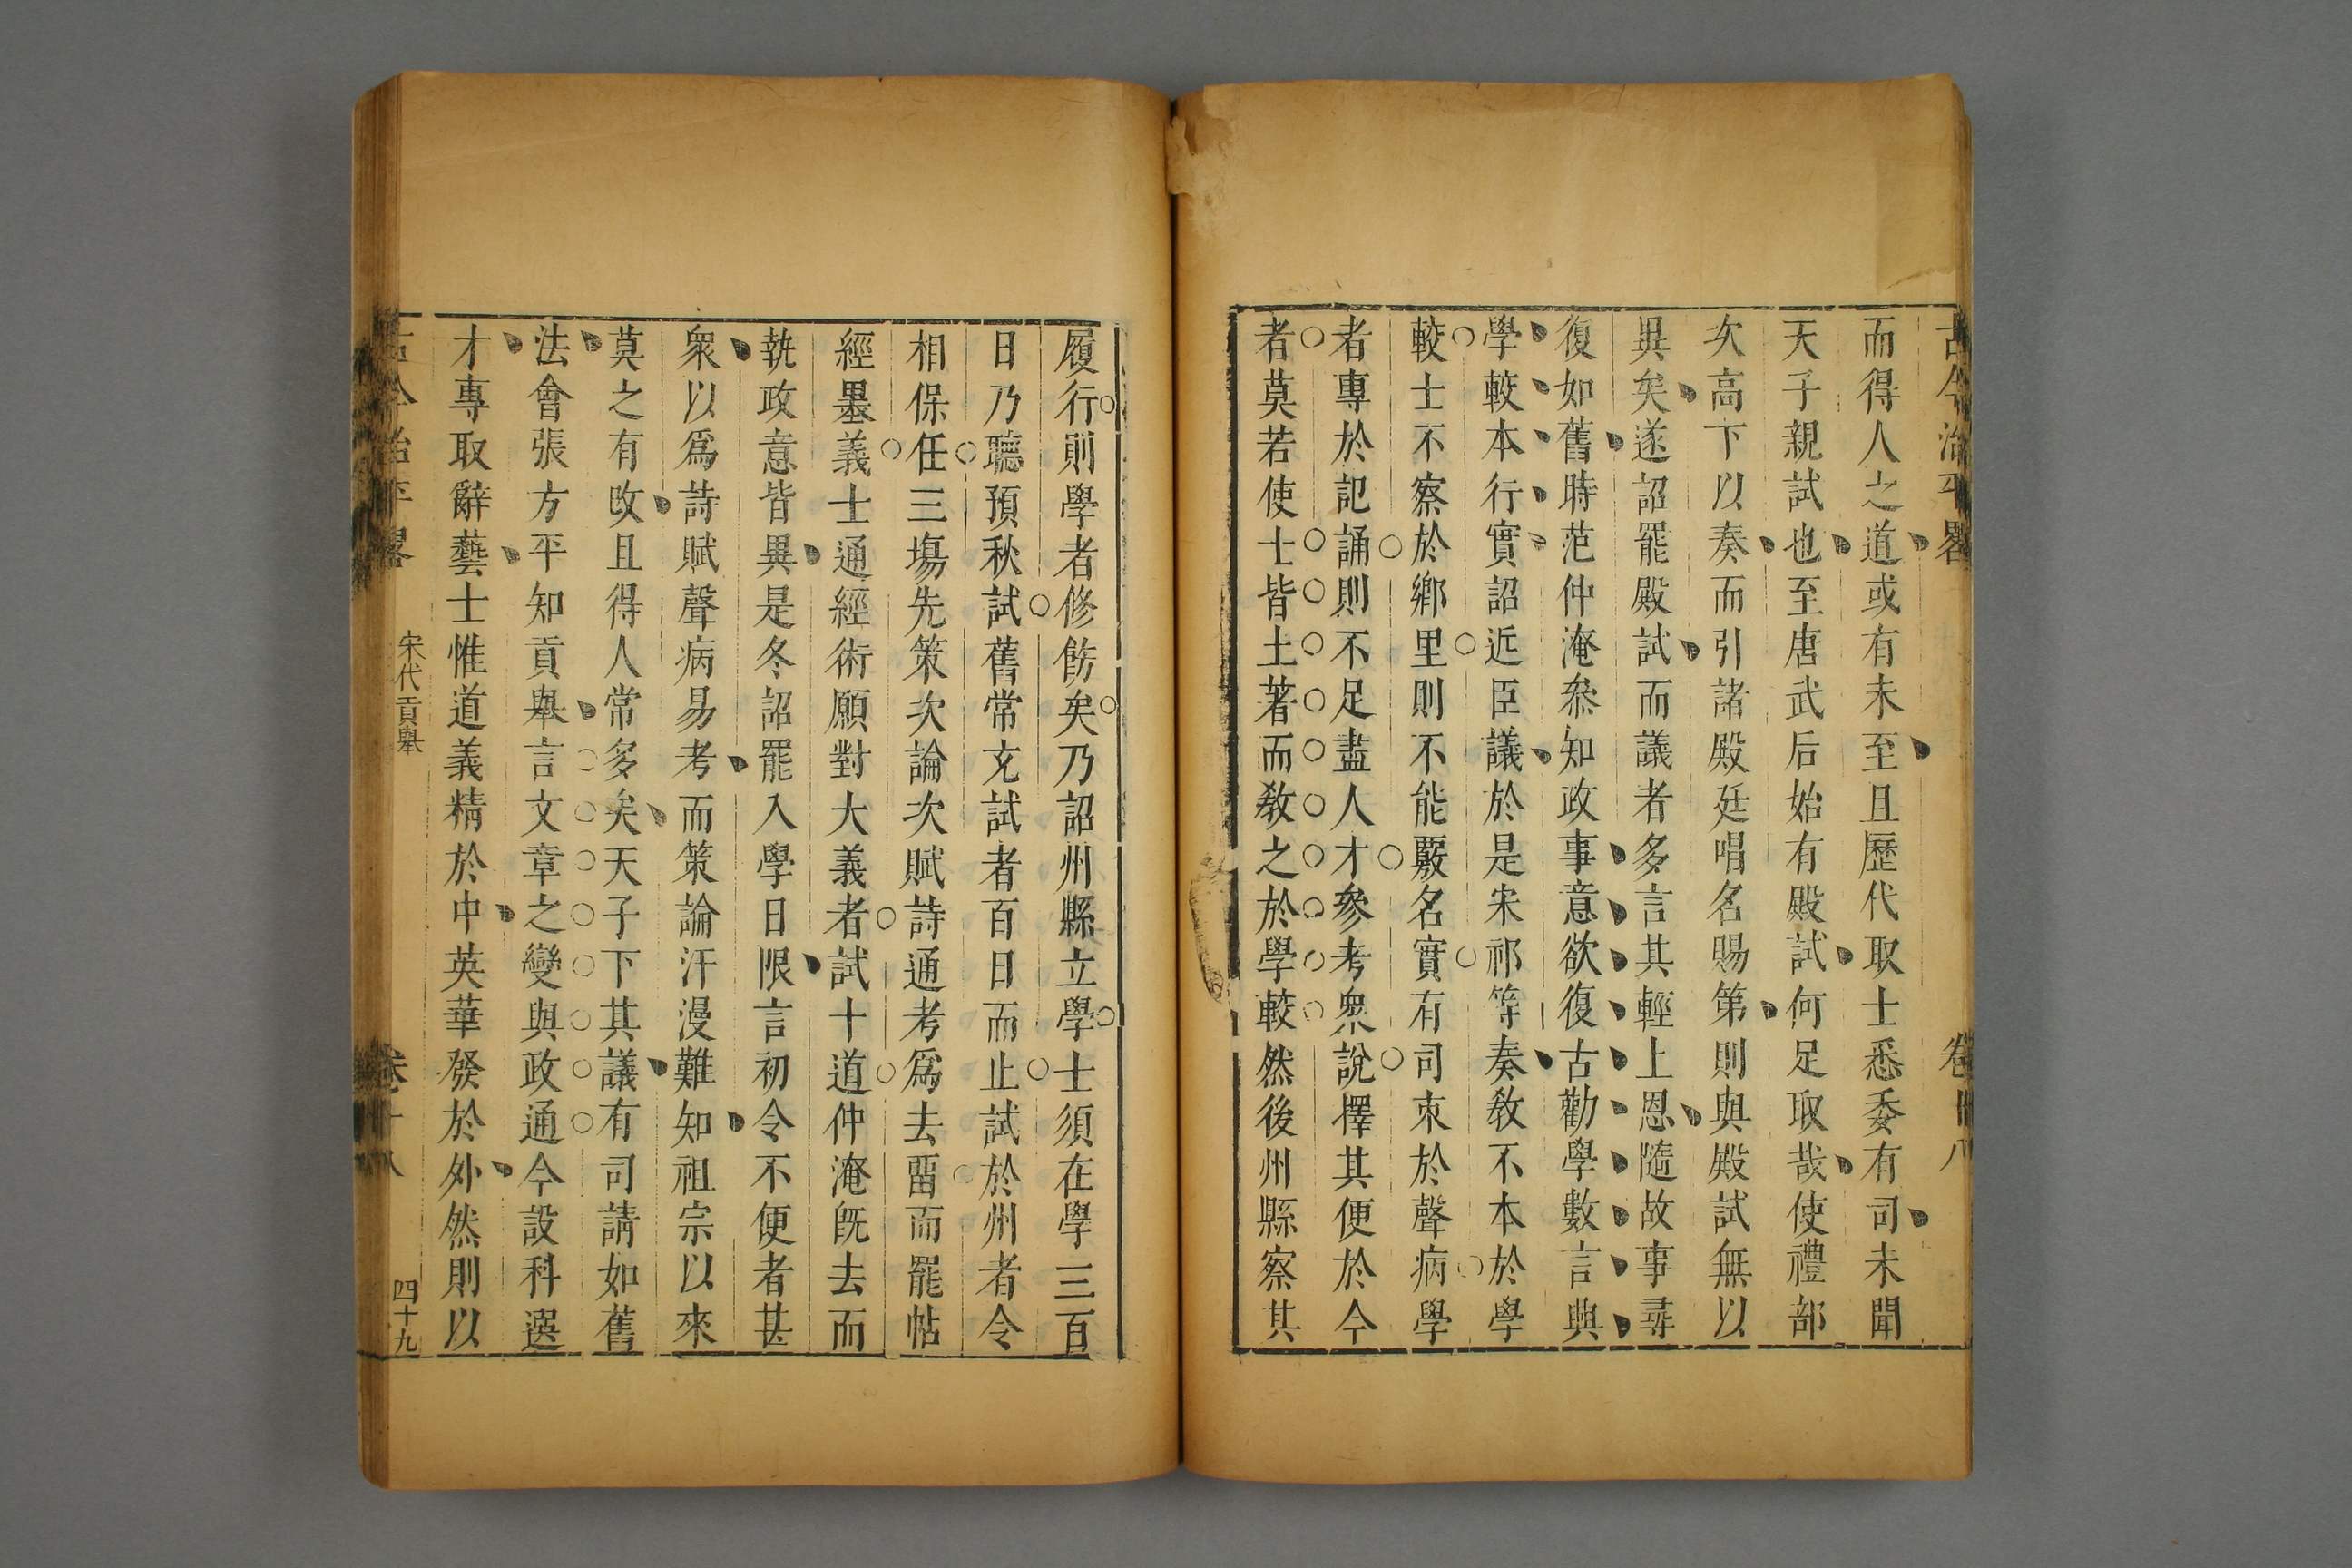 古今治平畧 卷十八
而得人之道或有未至且歷代取士悉委有司未聞
天子親試也至唐武后始有殿試何足取哉使禮部
次高下以奏而引諸殿廷唱名賜第則與殿試無以
異矣遂詔罷殿試而議者多言其輕上恩隨故事尋
復如舊時范仲淹叅知政事意欲復古勸學數言興
學較本行實詔近臣議於是宋祁等奏教不本於學
較士不察於鄉里則不能覈名實有司束於聲病學
者專於記誦則不足盡人才參考衆說擇其便於今
者莫若使士皆土著而教之於學較然後州縣察其
履行則學者修飭矣乃詔州縣立學士須在學三百
日乃聽預秋試舊常充試者百日而止試於州者令
相保任三場先策次論次賦詩通考爲去畱而罷帖
經墨義士通經術願對大義者試十道仲淹旣去而
執政意皆異是冬詔罷入學日限言初令不便者甚
衆以爲詩賦聲病易考而策論汗漫難知祖宗以來
莫之有改且得人常多矣天子下其議有司請如舊
法會張方平知貢舉言文章之變與政通今設科選
才專取辭藝士惟道義精於中英華發於外然則以
古今治平畧 宋代貢舉 卷十八 四十九